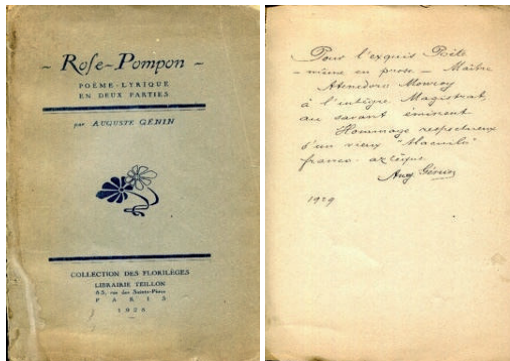 ~ Rose~Pompon ~
POÈME-LYRIQUE
EN DEUX PARTIES
par AUGUSTE GÉNIN
COLLECTION DES FLORILÈGES
LIBRAIRIE TEILLON
65, rue des Saints-Pères
PARIS
1926
Pour l'exquis Poète
- même en prose - Maître
Atenedoro Monroy
à l'intègre Magistrat,
au savant éminent
Hommage respectueux
d'un vieux
franco-aztèque
Aug Génin
1929